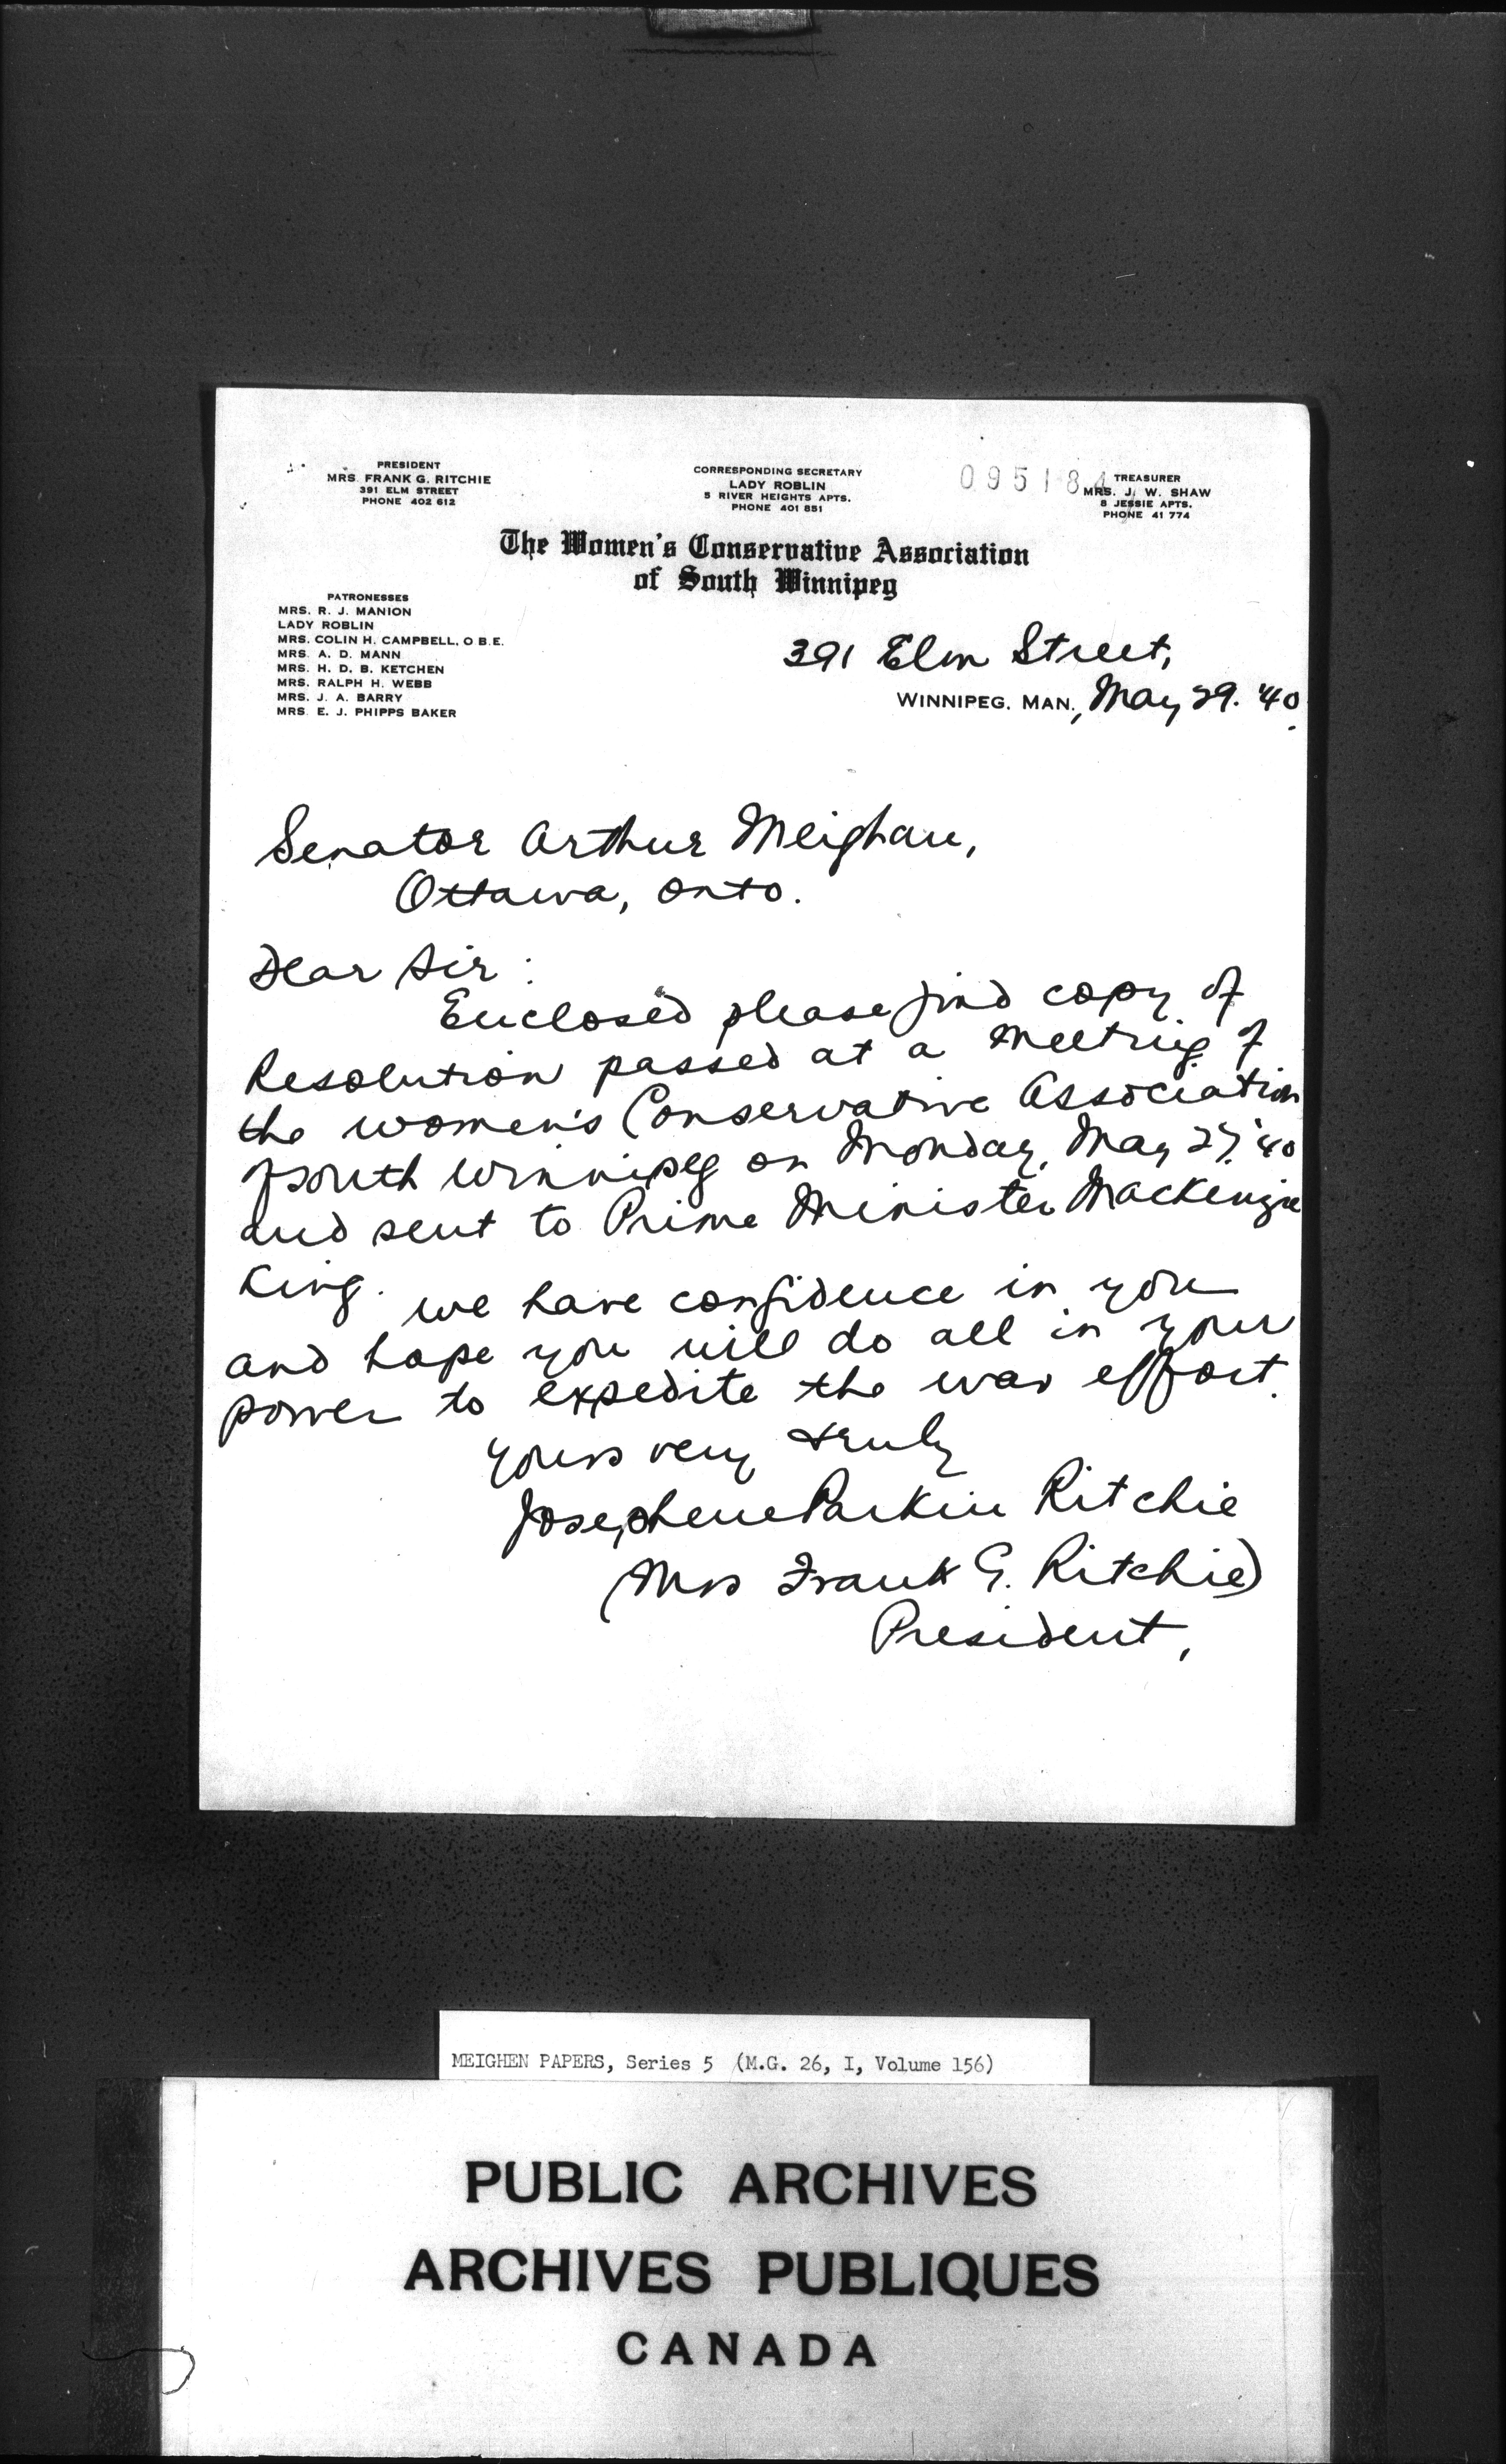 PRESIDENT
MRS. FRANK G. RITCHIE
391 ELM STREET
PHONE 402 612
CORRESPONDING SECRETARY
LADY ROBLIN
5 RIVER HEIGHTS APTS.
PHONE 401 851
095184
TREASURER
MRS. J. W. SHAW
8 JESSIE APTS.
PHONE 41 774
The Women's Conservative Association
of South Winnipeg
PATRONESSES
MRS. R. J. MANION
LADY ROBLIN
MRS. COLIN H. CAMPBELL, O B.E.
MRS. A. D. MANN
MRS. H. D. B. KETCHEN
MRS. RALPH H. WEBB
MRS. J. A. BARRY
MRS. E. J. PHIPPS BAKER
391 Elm Street,
WINNIPEG, MAN., May 29. '40.
Senator Arthur Meighan,
Ottawa, Onto.
Dear Sir:
Enclosed please find copy of
Resolution passed at a meeting of
the women's Conservative Association
of South Winnipeg on Monday, May 27. '40
and sent to Prime Minister Mackenzie
King. We have confidence in you
and hope you will do all in your
power to expedite the war effort.
Yours very truly
Josephene Parkin Ritchie
(Mrs Frank G. Ritchie)
President,
MEIGHEN PAPERS, Series 5 (M.G. 26, I, Volume 156)
PUBLIC ARCHIVES
ARCHIVES PUBLIQUES
CANADA